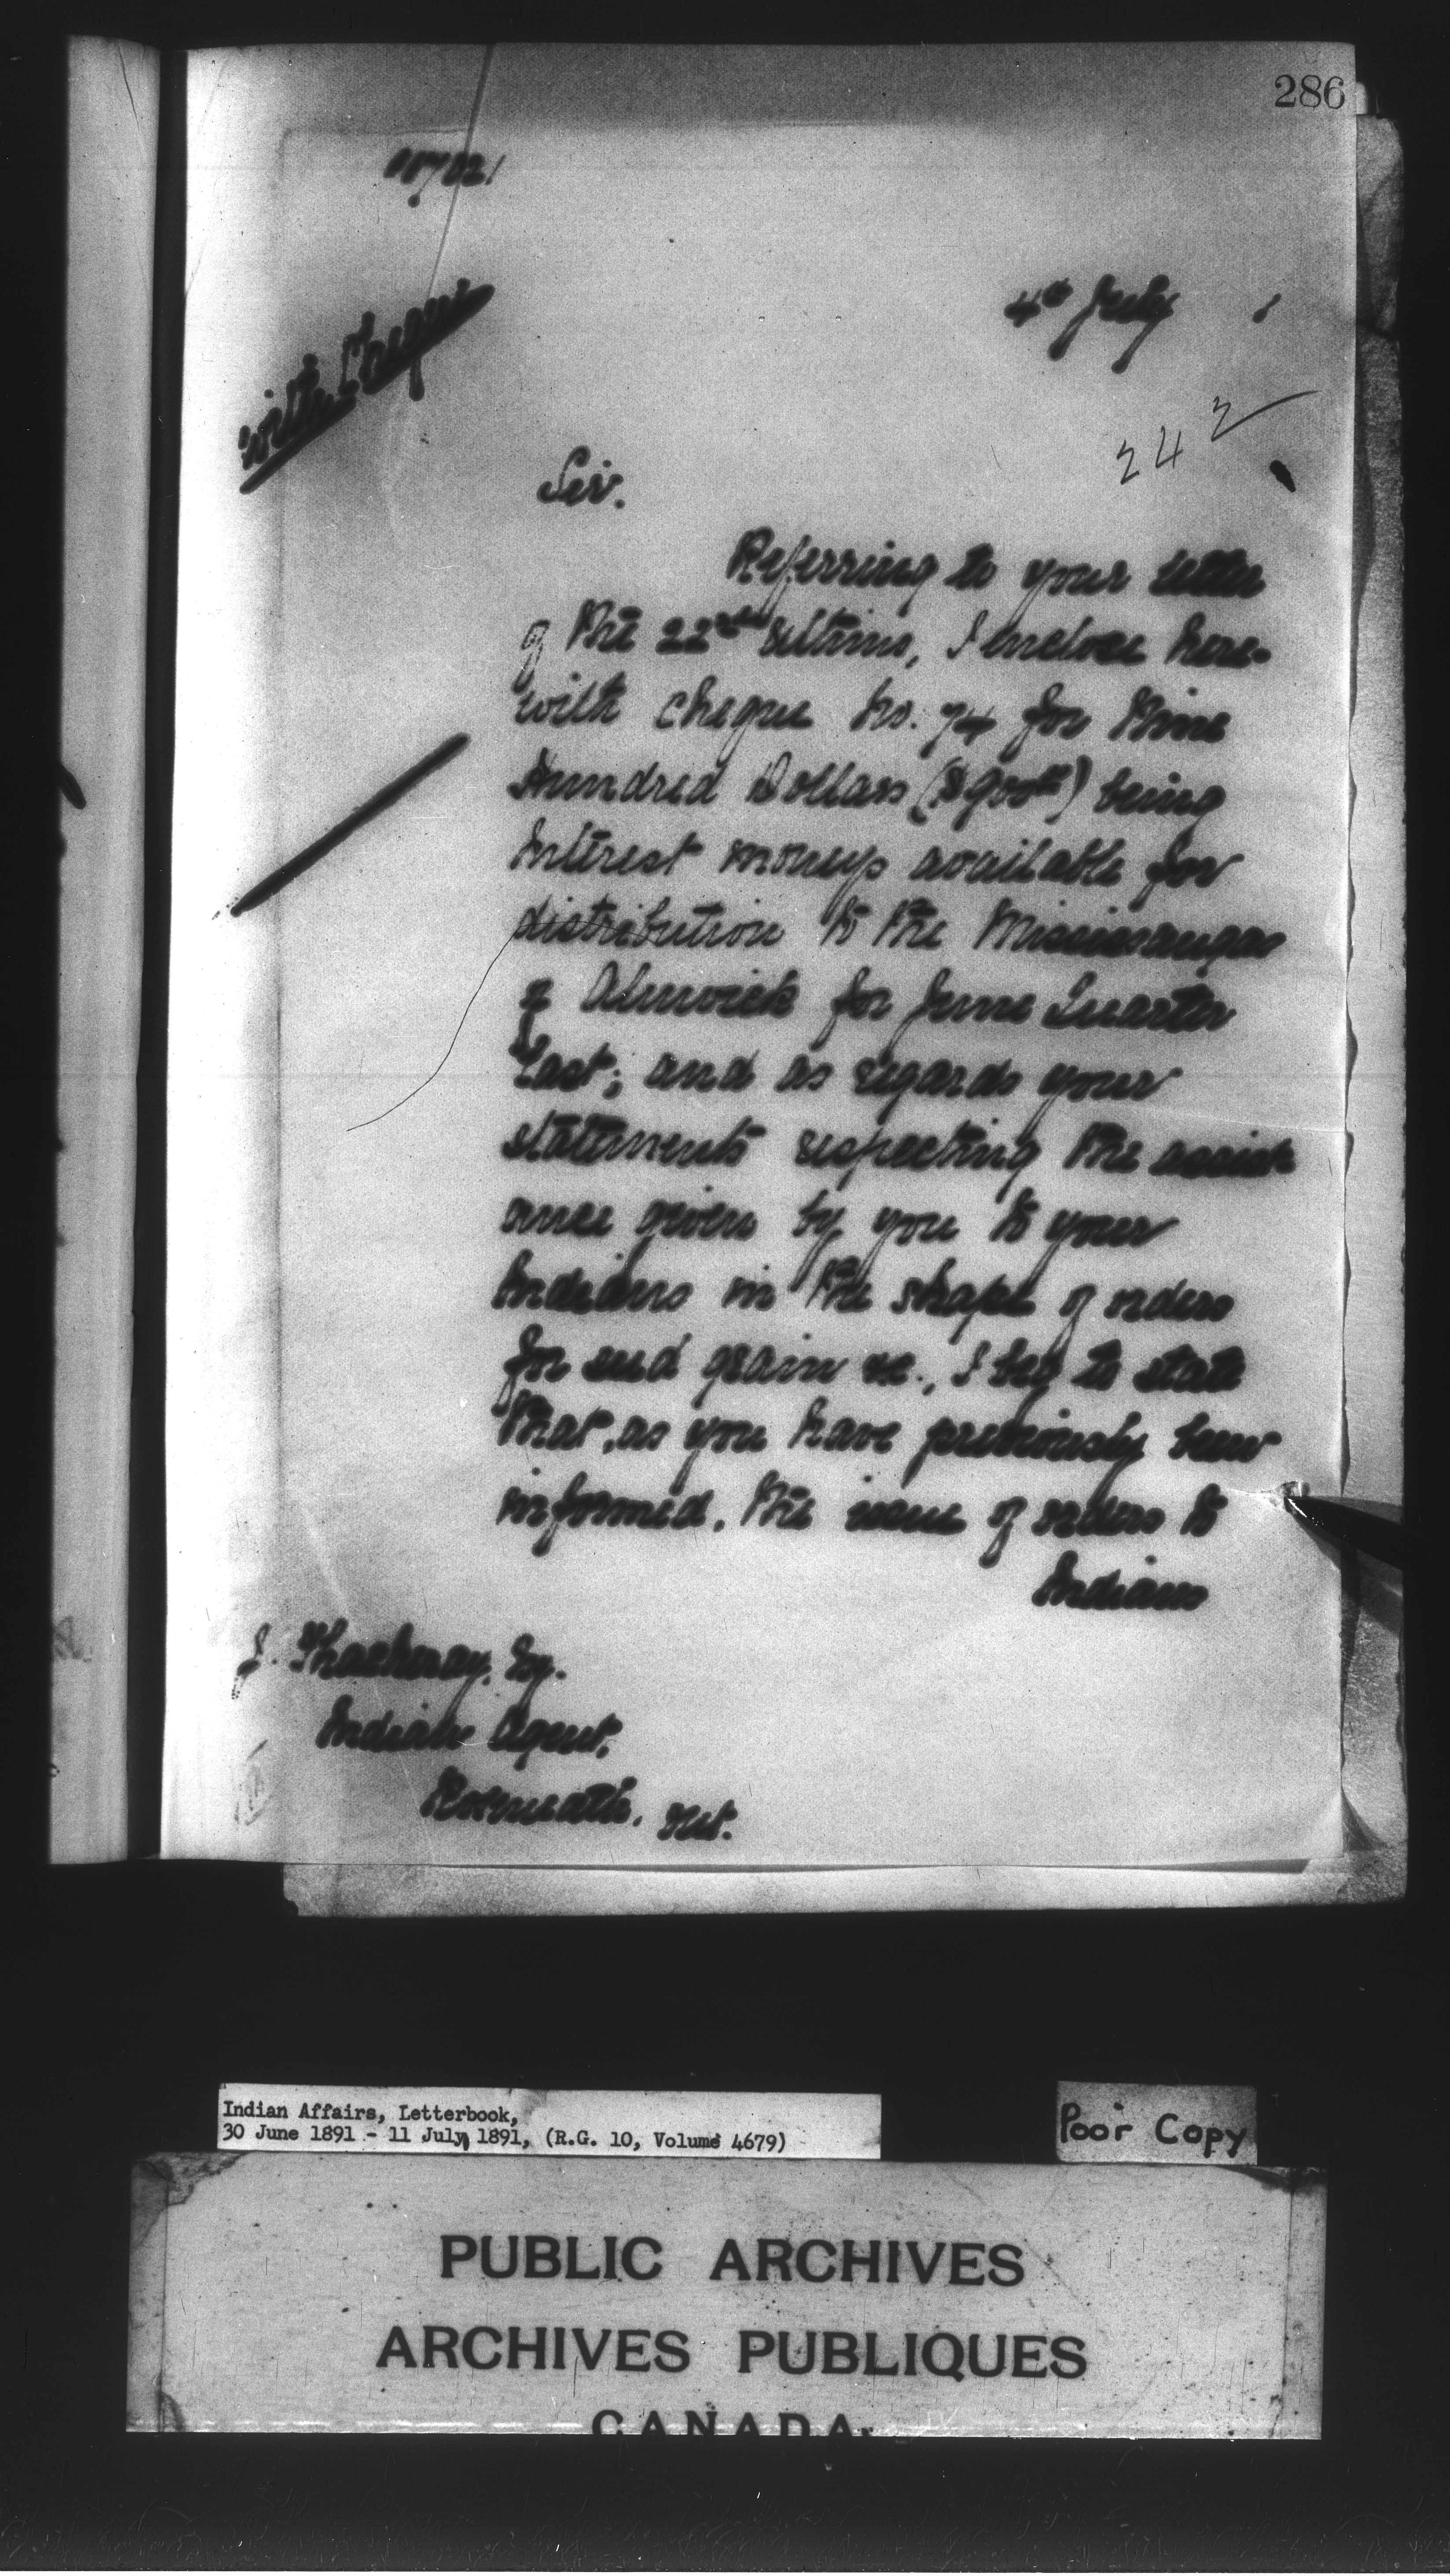 286
4th July 1
with Cheque
242
Sir.
Referring to your letter
of the 22nd ultimo, I enclose here-
with cheque No. 74 for Nine
Hundred Dollars ($900.00) being
Interest moneys available for
distribution to the Mississaugas
of Alnwick for June Quarter
last; and as regards your
statements respecting the assist-
ance given by you to your
Indians in the shape of orders
for seed grain &c., I beg to state
that, as you have previously been
informed, the issue of orders to
Indians
J. Thackeray, Esq.
Indian Agent,
Roseneath, Ont.
Indian Affairs, Letterbook,
30 June 1891 - 11 July 1891, (R.G. 10, Volume 4679)
Poor Copy
PUBLIC ARCHIVES
ARCHIVES PUBLIQUES
CANADA